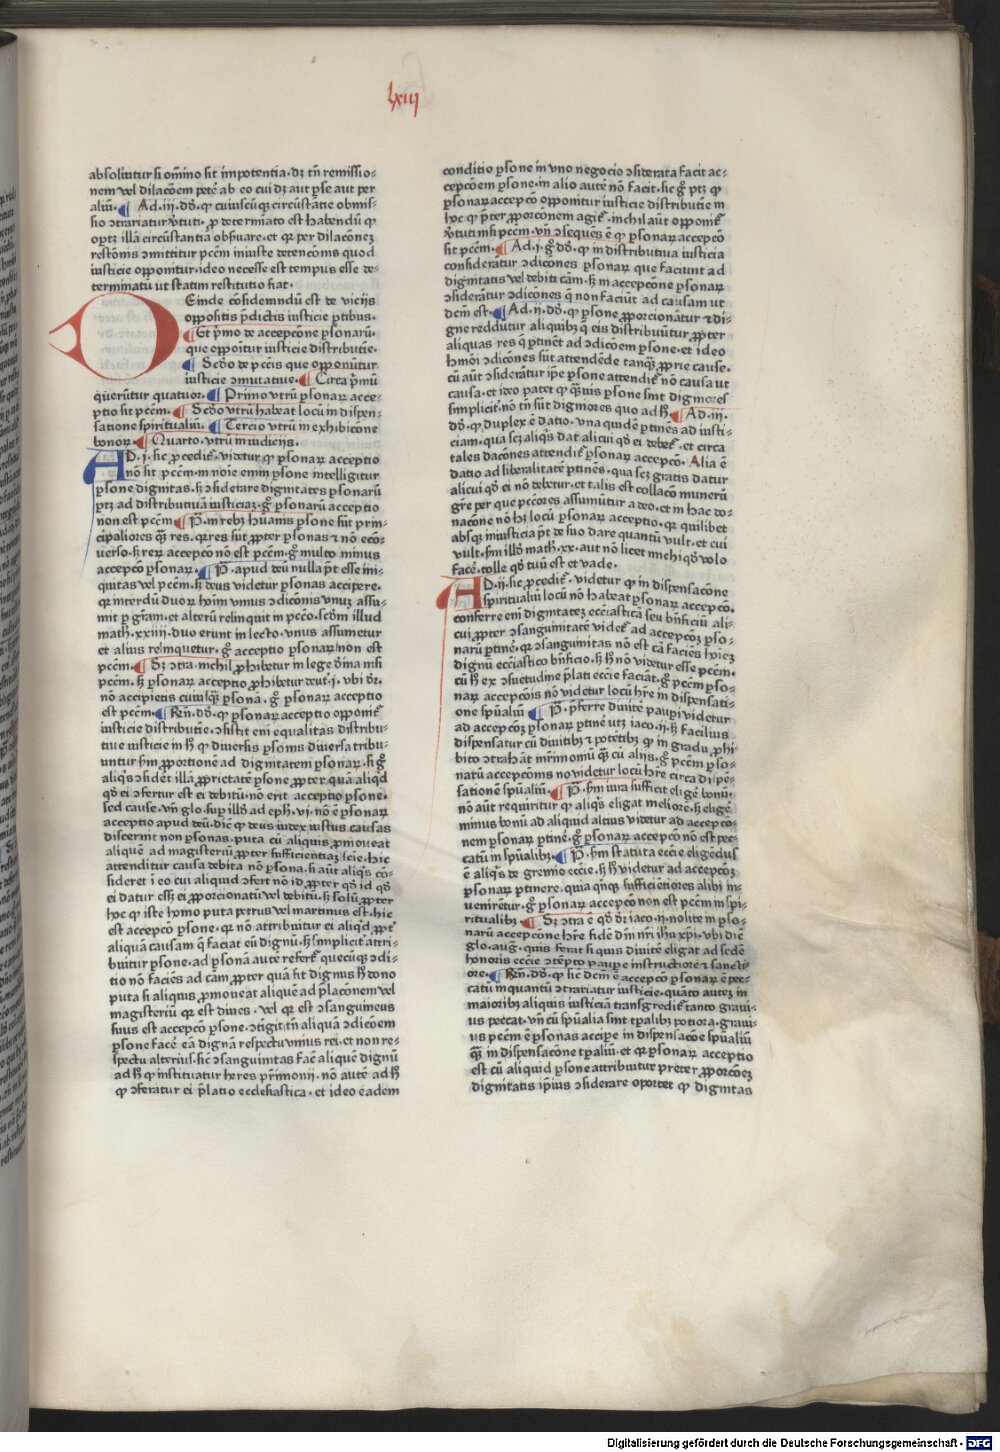 lxiij
absoluitur si oīmino sit impotentia·dꝫ tñ remissio-
nem vel dilacōem peteꝛ ab eo cui dꝫ aut ꝑse aut per
aliū·¶ Ad·iij·dd·ꝙ cuiuscūqꝫ circūstātie obmis-
sio ↄtrariatur v̓tuti·ꝓ determīato est habendū ꝙ
optꝫ illā circūstantiā obs̓uare·et qꝛ per dilacōneꝫ
restōnis ↄmittitur pccm̄ iniuste detencōnis quod
iusticie opponitur·ideo necesse est tempus esse de-
terminatū ut statim restitutio fiat·
DEinde cōsiderandū est de vicijs
oppositis p̄dictis iusticie ꝑtibus·
¶ Et p̓mo de accepcōne ꝑsonarū·
que oppoītur iusticie distributie·
¶ Scd̓o de pcc̄is que opponūtur
iusticie ↄmutatiue·¶ Circa p̓mū
queruntur quatuor·¶ Primo vtrū ꝑsonaꝝ acce-
ptio sit pccm̄·¶ Scd̓o vtrū habeat locū in dispen-
satione spiritualiū·¶ Tercio vtrū in exhibicōne
honoꝝ·¶ Quarto·vtrū in iudicijs·
AD·j·sic ꝓcedit̓·videtur ꝙ ꝑsonaꝝ acceptio
nō sit pccm̄·in noīe enim ꝑsone intelligitur
ꝑsone dignitas·sꝫ ↄsiderare dignitates ꝑsonarū
ꝑtꝫ ad distributiuā iusticiaꝫ·gͦ ꝑsonarū acceptio
non est pccm̄ ¶ P̄·in rebꝫ hūanis ꝑsone sūt prin-
cipaliores qꝫ res·qꝛ res sūt ꝓpter ꝑsonas ⁊ nō eco-
uerso·sꝫ reꝝ accepcō nō est pccm̄·gͦ multo minus
accepcō ꝑsonaꝝ·¶ P̄·apud deū nulla pt̄ esse ini-
quitas vel pccm̄·sꝫ deus videtur ꝑsonas accipere·
qꝛ interdū duoꝝ hoīm vnius ↄdicōnis vnuꝫ assu-
mit ꝑ gr̄am·et alterū relinquit in pccō·scd̓m illud
math·xxiiij·duo erunt in lecto·vnus assumetur
et alius relinquetur·gͦ acceptio ꝑsonaꝝ non est
pccm̄·¶ Sꝫ ↄtra·nichil ꝓhibetur in lege diīna nisi
pccm̄·sꝫ ꝑsonaꝝ acceptio ꝓhibetur deut̓·j·vbi dr̄·
nō accipietis cuiusqꝫ ꝑsonā·gͦ ꝑsonaꝝ acceptio
est pccm̄·¶ Rn̄·dd·ꝙ ꝑsonaꝝ acceptio opponit̓
iusticie distributie·ↄsistit eni equalitas distribu-
tiue iusticie in hͦ ꝙ diuersis ꝑsonis diuersa tribu-
untur s̄m ꝓportione ad dignitatem ꝑsonaꝝ·si gͦ
aliqͥs ↄsideꝛt illā ꝓprietatē ꝑsone ꝓpter quā aliqͥd
qd̓ ei ↄfertur est ei debitū·nō erit acceptio ꝑsone·
sed cause·vn̄ glo·suꝑ illd̓ ad eph·vj·nō ē ꝑsonaꝝ
acceptio apud deū·dic̄ ꝙ deus iudex iustus causas
discernit non ꝑsonas·puta cū aliquis ꝓmoueat
aliquē ad magisteriū ꝓpter sufficientiaꝫ scīe·hic
attenditur causa debita nō ꝑsona·si aūt aliqͥs cō-
sideret ī eo cui aliquid ↄfert nō id ꝓpter qd̓ id qd̓
ei datur ess̓ꝫ ei ꝓporcionatū vel debitū·sꝫ solū ꝓpter
hoc ꝙ iste homo puta petrus vel martinus est·hic
est accepcō ꝑsone·qꝛ nō attribuitur ei aliqͥd ꝓpt̓
aliquā causam q̄ faciat eū dignū·sꝫ simplicit̓ attri-
buitur ꝑsone·ad ꝑsonā autē refert̓ quecūqꝫ ↄdi-
tio nō faciēs ad cām ꝓpter quā sit dignus hͦ dono
puta si aliquis ꝓmoueat aliquē ad p̄lacōnem vel
magisteriū qꝛ est diues·vel qꝛ est ↄsanguineus
suus est accepcō ꝑsone·ↄtigit tñ aliquā ↄdicōem
ꝑsone facē eā dignā respectu vnius rei·et non re-
spectu alterius·sic̄ ↄsanguinitas fac̄ aliquē dignū
ad hͦ ꝙ instituatur heres pr̄imonij·nō autē ad hͦ
ꝙ ↄferatur ei p̄latio ecclesiastica·et ideo eadem
conditio ꝑsone in vno negocio ↄsiderata facit ac-
cepcōem ꝑsone·in alio autē nō facit·sic gͦ ptꝫ ꝙ
ꝑsonaꝝ accepcō opponitur iusticie distributiue in
hoc ꝙ p̄ter ꝓporcōnem agit̓·nichil aūt opponit̓
v̓tuti nisi pccm̄·vn̄ ↄsequēs ē ꝙ ꝑsonaꝝ accepcō
sit pccm̄·¶ Ad·j·gͦ dd·ꝙ in distributiua iusticia
considerātur ↄdicōnes ꝑsonaꝝ que faciunt ad
dignitatis vel debiti cām·sꝫ in accepcōne ꝑsonaꝝ
ↄsiderātur ↄdicōnes q̄ non faciūt ad causam ut
dcm̄ est·¶ Ad·ij·dd·ꝙ ꝑsone ꝓporcionātur ⁊ di-
gne reddūtur aliquibꝫ q̄ eis distribuūtur ꝓpter
aliquas res q̄ ꝑtinēt ad ↄdicōem ꝑsone·et ideo
hmōi ↄdicōnes sūt attendēde tanqꝫ ꝓprie cause·
cū aūt ↄsiderātur ip̄e ꝑsone attendit̓ nō causa ut
causa·et ideo patet ꝙ qꝫuis ꝑsone sint digniores
simplicit̓·nō tñ sūt digniores quo ad hͦ ¶ Ad·iij·
dd·ꝙ duplex ē datio·vna quidē ꝑtinēs ad iusti-
ciam·qua scꝫ aliqͥs dat alicui qd̓ ei debet̓·et circa
tales dacōnes attendit̓ ꝑsonaꝝ accepcō·Alia ē
datio ad liberalitatē ꝑtinēs·qua scꝫ gratis datur
alicui qd̓ ei nō debetur·et talis est collacō munerū
gr̄e per que pccōres assumūtur a deo·et in hac do-
nacōne nō hꝫ locū ꝑsonaꝝ acceptio·qꝛ quilibet
absqꝫ iniusticia pt̄ de suo dare quantū vult·et cui
vult·s̄m illd̓ math·xx·aut nō licet michi qd̓ volo
facē·tolle qd̓ tuū est et vade·
AD·ij·sic ꝓcedit̓·videtur ꝙ in dispensacōne
spiritualiū locū nō habeat ꝑsonaꝝ accepcō·
conferre eni dignitateꝫ ecc̄iasticā seu bn̄ficiū ali-
cui ꝓpter ↄsanguinitatē videt̓ ad accepcōꝫ ꝑso-
narū ꝑtinē·qꝛ ↄsanguinitas nō est cā faciēs hoīeꝫ
dignū ecc̄iastico bn̄ficio·sꝫ hͦ nō videtur esse pccm̄·
cū hͦ ex ↄsuetudine p̄lati ecc̄ie faciāt·gͦ pccm̄ ꝑso-
naꝝ accepcōis nō videtur locū hr̄e in dispensati-
one spūaliū ¶ P̄·p̄ferre diuitē pauꝑi videtur
ad accepcōꝫ ꝑsonaꝝ ꝑtinē utꝫ iaco·ij·sꝫ facilius
dispensatur cū diuitibꝫ ⁊ potētibꝫ ꝙ in gradu ꝓhi-
bito ↄtrahāt mr̄imoniū qꝫ cū alijs·gͦ pccm̄ ꝑso-
narū accepcōnis nō videtur locū hr̄e circa dispē-
satione spūaliū·¶ P̄·s̄m iura sufficit eligē bonū·
nō aūt requiritur ꝙ aliqͥs eligat meliorē·sꝫ eligē
minus bonū ad aliquid alcius videtur ad accepcō-
nem ꝑsonaꝝ ꝑtinē·gͦ ꝑsonaꝝ accepcō nō est pec-
catū in spūalibꝫ·¶ P̄·s̄m statuta ecc̄ie eligēdus
ē aliqͥs de gremio ecc̄ie·sꝫ hͦ videtur ad accepcōꝫ
ꝑsonaꝝ ꝑtinere·quia qn̄qꝫ sufficiētiores alibi in-
uenirētur·gͦ ꝑsonaꝝ accepcō non est pccm̄ in spi-
ritualibꝫ ¶ Sꝫ ↄtra ē qd̓ dr̄ iaco·ij·nolite in ꝑso-
narū accepcōne hr̄e fidē dn̄i nr̄i ih̄u xp̄i·vbi dic̄
glo·aug̓·quis ferat si quis diuitē eligat ad sedē
honoris ecc̄ie ↄtēpto pauꝑe instructiore ⁊ sancti-
ore·¶ Rn̄·dd·ꝙ sic̄ dcm̄ ē accepcō ꝑsonaꝝ ē pec-
catū inquantū ↄtrariatur iusticie·quāto auteꝫ in
maioribꝫ aliquis iusticiā transgredit̓ tanto graui-
us peccat·vn̄ cū spūalia sint tꝑalibꝫ potiora·graui-
us pccm̄ ē ꝑsonas accipe in dispensacōe spūaliū
qꝫ in dispensacōne tꝑaliū·et qꝛ ꝑsonaꝝ acceptio
est cū aliquid ꝑsone attribuitur preter ꝓporcōeꝫ
dignitatis ip̄ius ↄsiderare oportet ꝙ dignitas
Digitalisierung gefördert durch die Deutsche Forschungsgemeinschaft - DFG